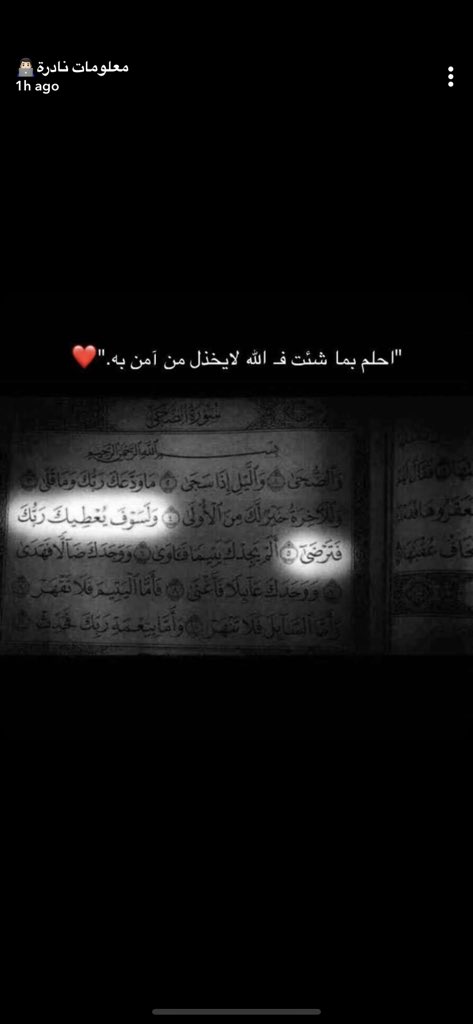 معلومات نادرة
1h ago
"احلم بما شئت فـ الله لايخذل من آمن به."❤️
سُورَةُ الضُّحَىٰ
بِسْمِ اللَّهِ الرَّحْمَٰنِ الرَّحِيمِ
وَالضُّحَىٰ ١ وَالَّيْلِ إِذَا سَجَىٰ ٢ مَا وَدَّعَكَ رَبُّكَ وَمَا قَلَىٰ ٣
وَلَلْآخِرَةُ خَيْرٌ لَّكَ مِنَ الْأُولَىٰ ٤ وَلَسَوْفَ يُعْطِيكَ رَبُّكَ
فَتَرْضَىٰ ٥ أَلَمْ يَجِدْكَ يَتِيمًا فَآوَىٰ ٦ وَوَجَدَكَ ضَالًّا فَهَدَىٰ
٧ وَوَجَدَكَ عَائِلًا فَأَغْنَىٰ ٨ فَأَمَّا الْيَتِيمَ فَلَا تَقْهَرْ ٩
وَأَمَّا السَّائِلَ فَلَا تَنْهَرْ ١٠ وَأَمَّا بِنِعْمَةِ رَبِّكَ فَحَدِّثْ ١١